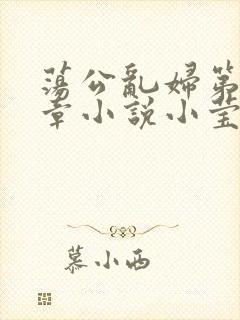 蕩公亂婦第
章小說小莹
慕小西